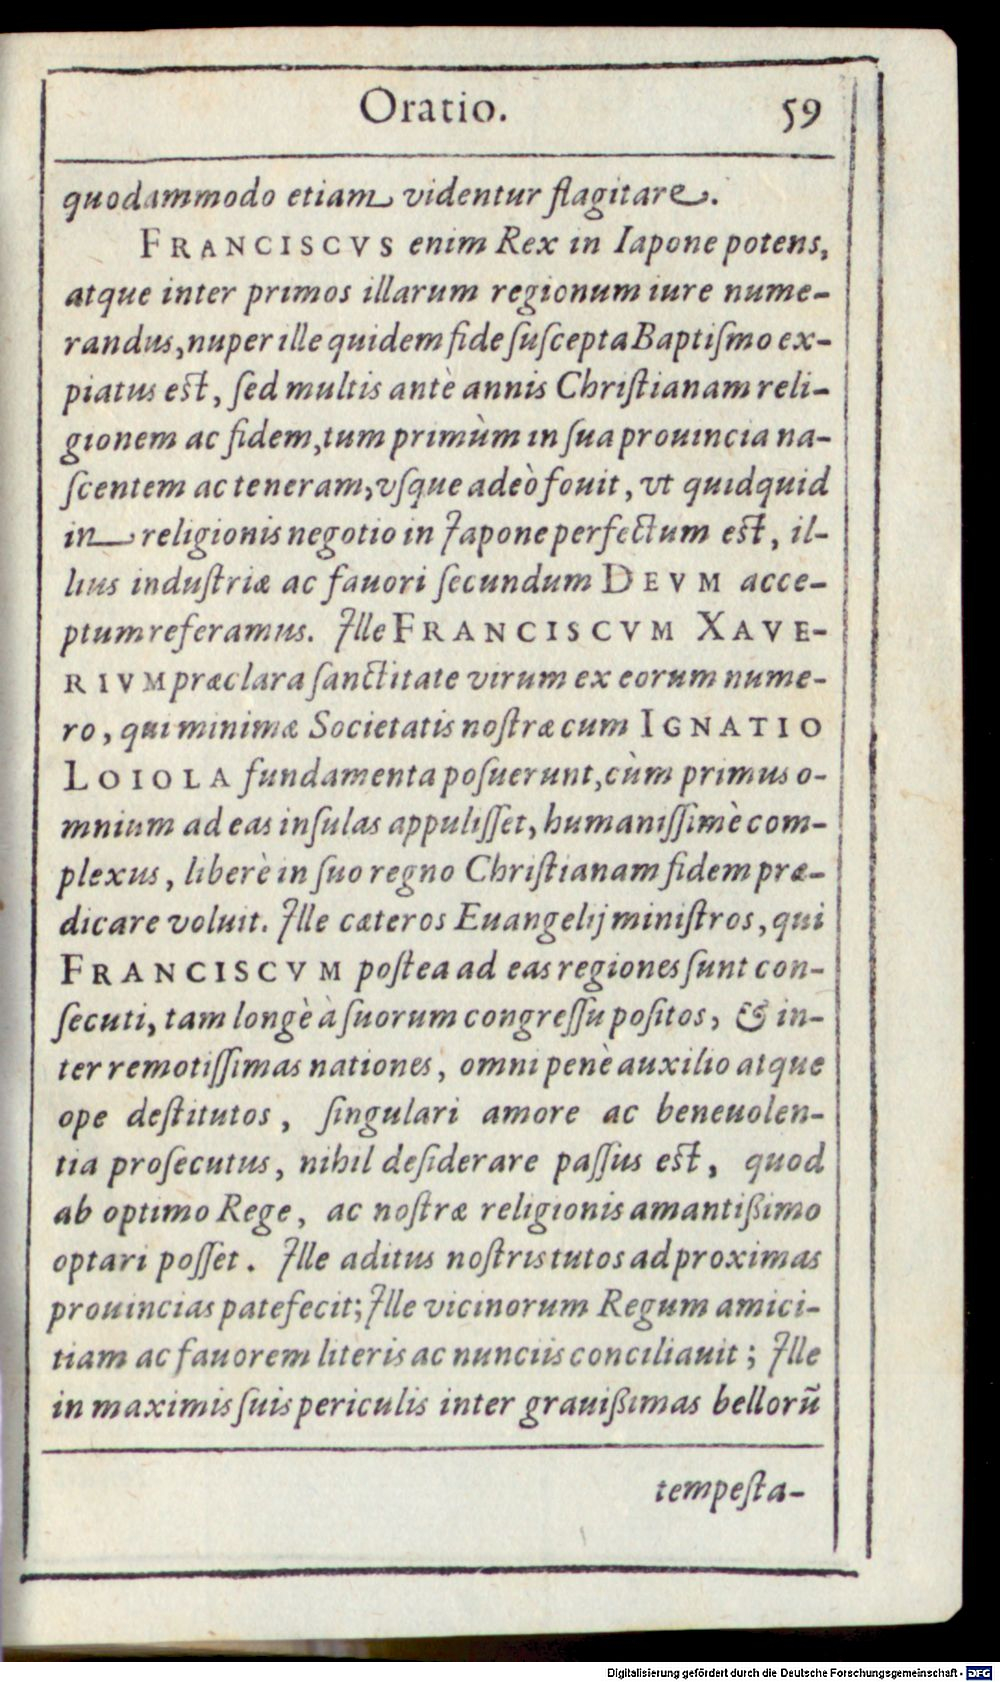 Oratio. 59
quodammodo etiam videntur flagitare.
FRANCISCVS enim Rex in Iapone potens,
atque inter primos illarum regionum iure nume-
randus, nuper ille quidem fide ſuſcepta Baptiſmo ex-
piatus eſt, ſed multis antè annis Chriſtianam reli-
gionem ac fidem, tum primùm in ſua prouincia na-
ſcentem ac teneram, vſque adeò fouit, vt quidquid
in religionis negotio in Japone perfectum eſt, il-
lius induſtriæ ac fauori ſecundum DEVM acce-
ptum referamus. Jlle FRANCISCVM XAVE-
RIVM præclara ſanctitate virum ex eorum nume-
ro, qui minimæ Societatis noſtræ cum IGNATIO
LOIOLA fundamenta poſuerunt, cùm primus o-
mnium ad eas inſulas appuliſſet, humaniſſimè com-
plexus, liberè in ſuo regno Chriſtianam fidem præ-
dicare voluit. Jlle cæteros Euangelij miniſtros, qui
FRANCISCVM poſtea ad eas regiones ſunt con-
ſecuti, tam longè à ſuorum congreſſu poſitos, & in-
ter remotiſſimas nationes, omni penè auxilio atque
ope deſtitutos, ſingulari amore ac beneuolen-
tia proſecutus, nihil deſiderare paſſus eſt, quod
ab optimo Rege, ac noſtræ religionis amantißimo
optari poſſet. Jlle aditus noſtris tutos ad proximas
prouincias patefecit; Jlle vicinorum Regum amici-
tiam ac fauorem literis ac nunciis conciliauit; Jlle
in maximis ſuis periculis inter grauißimas bellorũ
tempeſta-
Digitalisierung gefördert durch die Deutsche Forschungsgemeinschaft - DFG